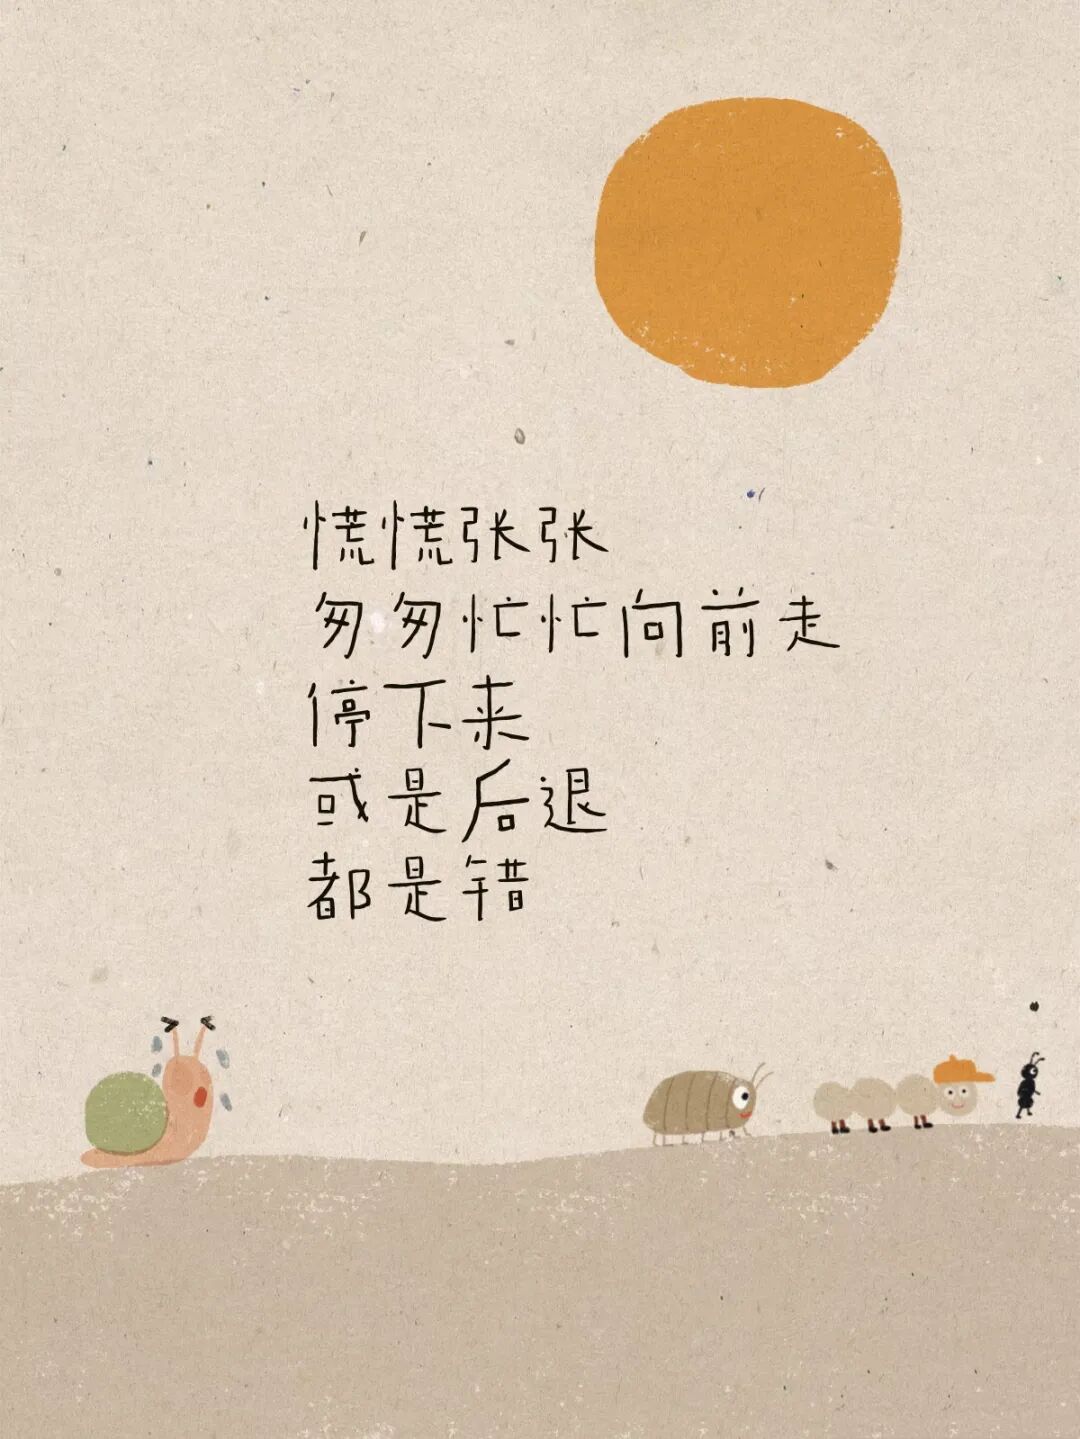 慌慌张张
匆匆忙忙向前走
停下来
或是后退
都是错